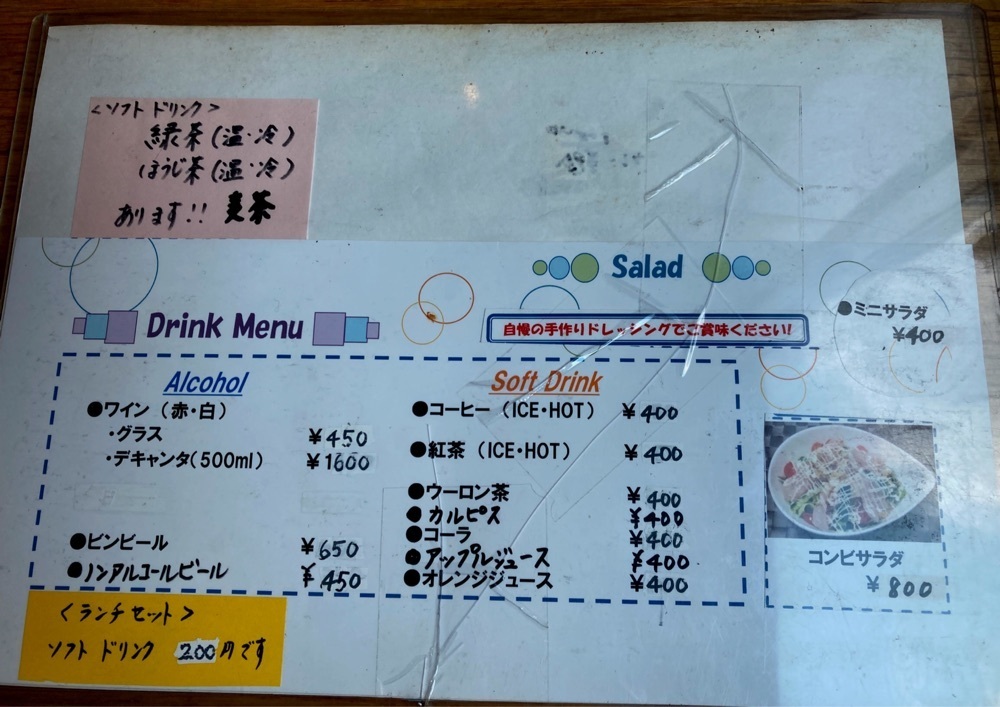 <ソフト ドリンク>
緑茶(温・冷)
ほうじ茶(温・冷)
あります!! 麦茶
Salad
Drink Menu
自慢の手作りドレッシングでご賞味ください!
●ミニサラダ
¥400
Alcohol
●ワイン（赤・白）
・グラス ¥450
・デキャンタ(500ml) ¥1600
●ビンビール ¥650
●ノンアルコールビール ¥450
Soft Drink
●コーヒー（ICE・HOT） ¥400
●紅茶（ICE・HOT） ¥400
●ウーロン茶 ¥400
●カルピス ¥400
●コーラ ¥400
●アップルジュース ¥400
●オレンジジュース ¥400
コンビサラダ
¥800
<ランチセット>
ソフト ドリンク 200円です